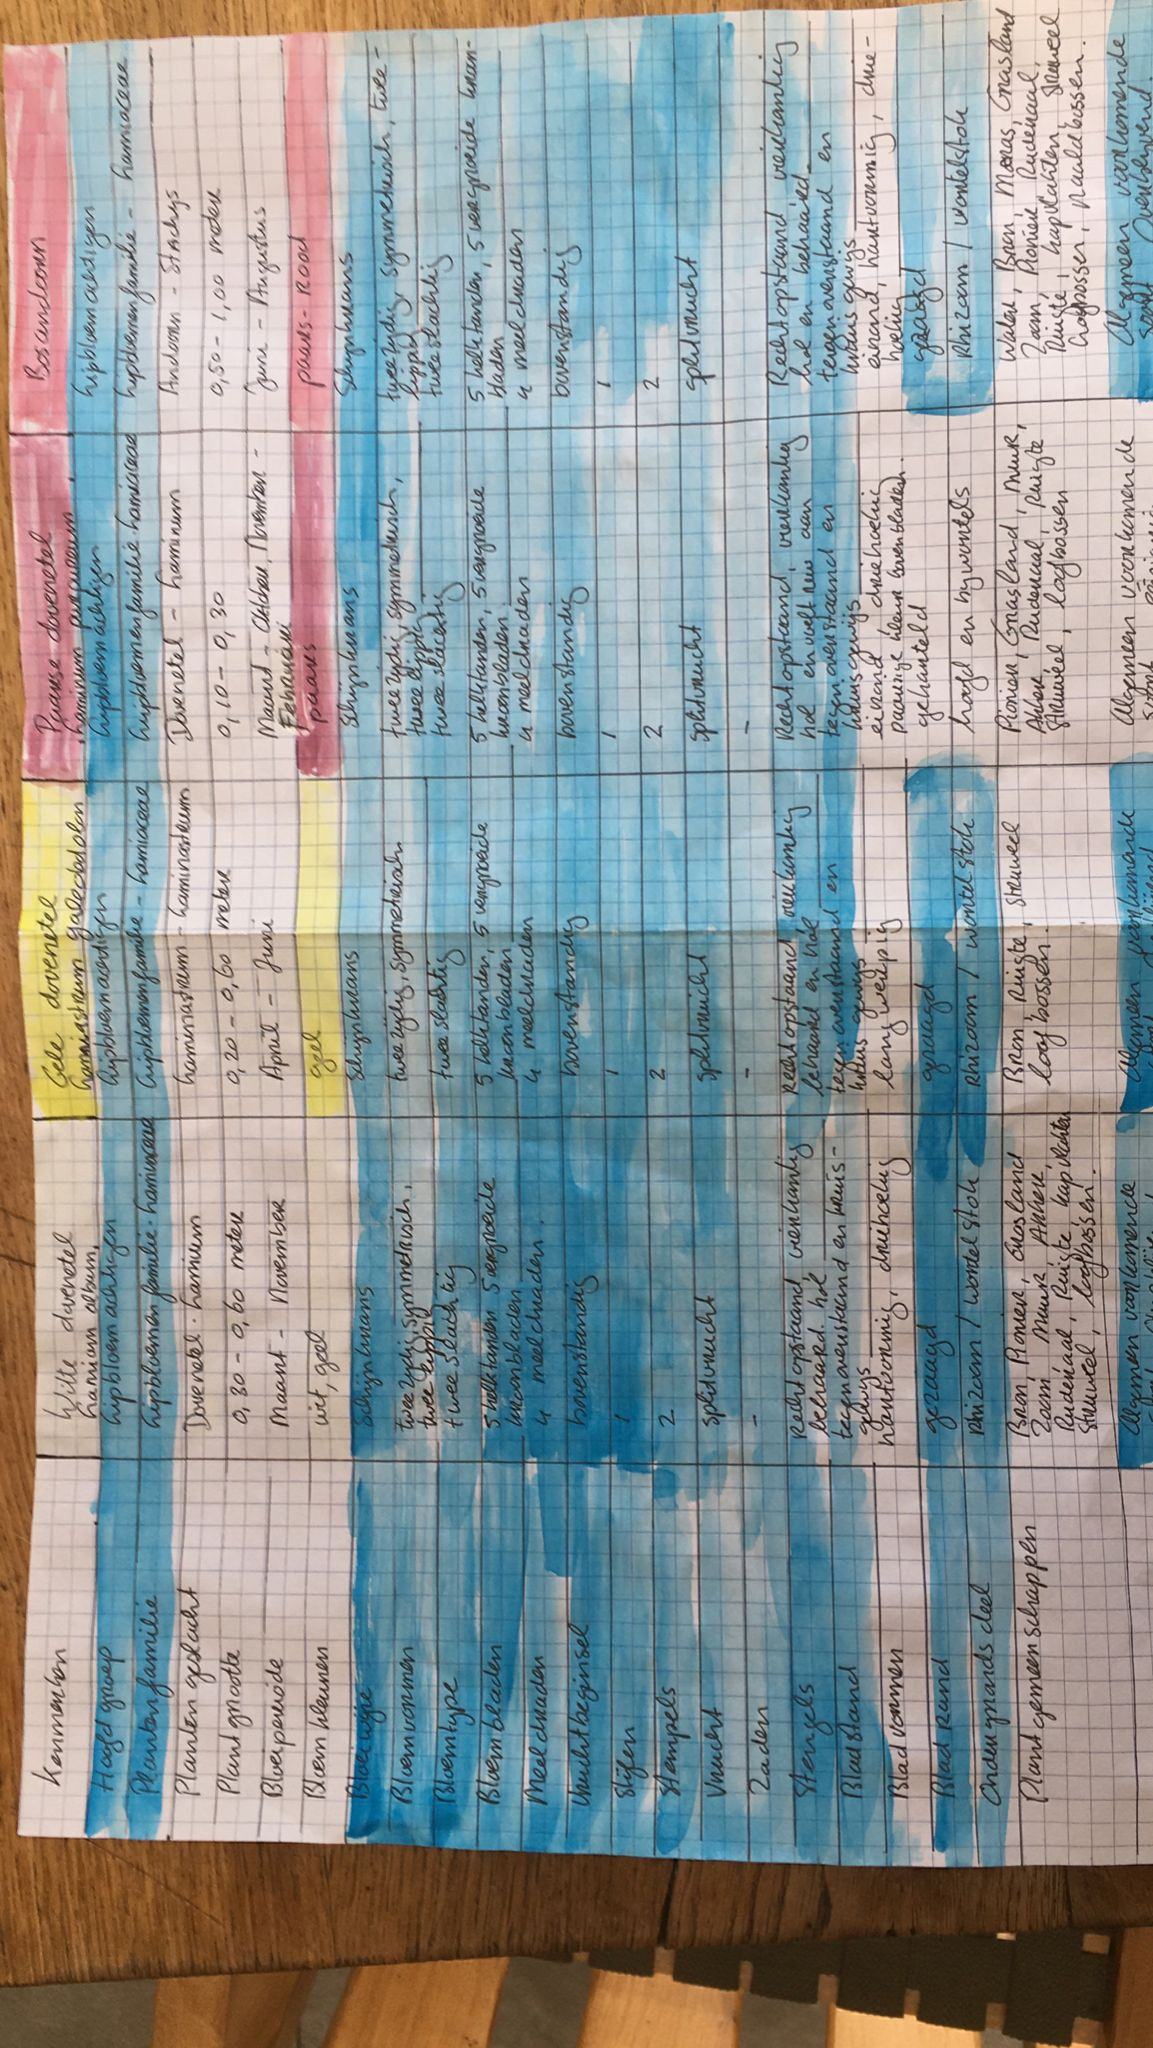 Kenmerken
Witte dovenetel
lamium album,
Gele dovenetel
lamiastrum galeobdolon
Paarse dovenetel
lamium purpureum
Bosandoorn
Hoofd groep
lipbloemachtigen
lipbloemachtigen
lipbloemachtigen
lipbloemachtigen
Plantenfamilie
lipbloemenfamilie - lamiaceae
lipbloemenfamilie - lamiaceae
lipbloemenfamilie - lamiaceae
lipbloemenfamilie - lamiaceae
Planten geslacht
Dovenetel - lamium
lamiastrum - lamiastrum
Dovenetel - lamium
Andoorn - Stachys
Plant grootte
0,30 - 0,60 meter
0,20 - 0,60 meter
0,10 - 0,30
0,50 - 1,00 meter
Bloeiperiode
Maart - November
April - Juni
Maart - Oktober, November -
Februari
Juni - Augustus
Bloem kleuren
wit, geel
geel
paars
paars - Rood
Bloeiwijze
Schijnkrans
Schijnkrans
Schijnkrans
Schijnkrans
Bloemvormen
twee zijdig symmetrisch,
twee lippig
twee zijdig, symmetrisch
twee zijdig, symmetrisch,
twee lippig
twee zijdig, symmetrisch, twee-
lippig
Bloemtype
twee slachtig
twee slachtig
twee slachtig
twee slachtig
Bloembladen
5 kelktanden 5 vergroeide
kroonbladen
5 kelktanden, 5 vergroeide
kroonbladen
5 kelktanden, 5 vergroeide
kroonbladen
5 kelktanden, 5 vergroeide kroon-
bladen
Meeldraden
4 meeldraden
4 meeldraden
4 meeldraden
4 meeldraden
Vruchtbeginsel
bovenstandig
bovenstandig
bovenstandig
bovenstandig
Stijlen
1
1
1
1
Stempels
2
2
2
2
Vrucht
splitvrucht
splitvrucht
splitvrucht
splitvrucht
Zaden
-
-
-
Stengels
Recht opstaand vierkantig
behaard hol
Recht opstaand vierkantig
behaard en hol
Rechtopstaand, vierkantig
hol en
Rechtopstaand vierkantig
hol en behaard
Bladstand
tegenoverstaand en kruis-
gewijs
tegenoverstaand en
kruis gewijs
tegenoverstaand en
kruisgewijs
tegenoverstaand en
kruisgewijs
Blad vormen
hartvormig, driehoekig
langwerpig
eirond driehoekig
paarsige kleur bovenbladen.
eirond, hartvormig, drie-
hoekig
Blad rand
gezaagd
gezaagd
gekarteld
gezaagd
Ondergronds deel
Rhizoom / wortelstok
Rhizoom / wortelstok
hoofd en bijwortels
Rhizoom / wortelstok
Plantgemeenschappen
Bron, Pionier, Grasland
Zoom, Muur, Akker,
Ruderaal, Ruigte kapvlakten
Struweel, loofbossen.
Bron, Ruigte, Struweel
loofbossen.
Pionier, Grasland, Muur,
Akker, Ruderaal, Ruigte
Struweel, loofbossen
Water, Bron, Moeras, Grasland
Zoom, Pionier, Ruderaal,
Ruigte, kapvlakten, Struweel
Loofbossen, Naaldbossen.
Algemeen voorkomende
Algemeen voorkomende
Algemeen voorkomende
Algemeen voorkomende
soort Overblijvend